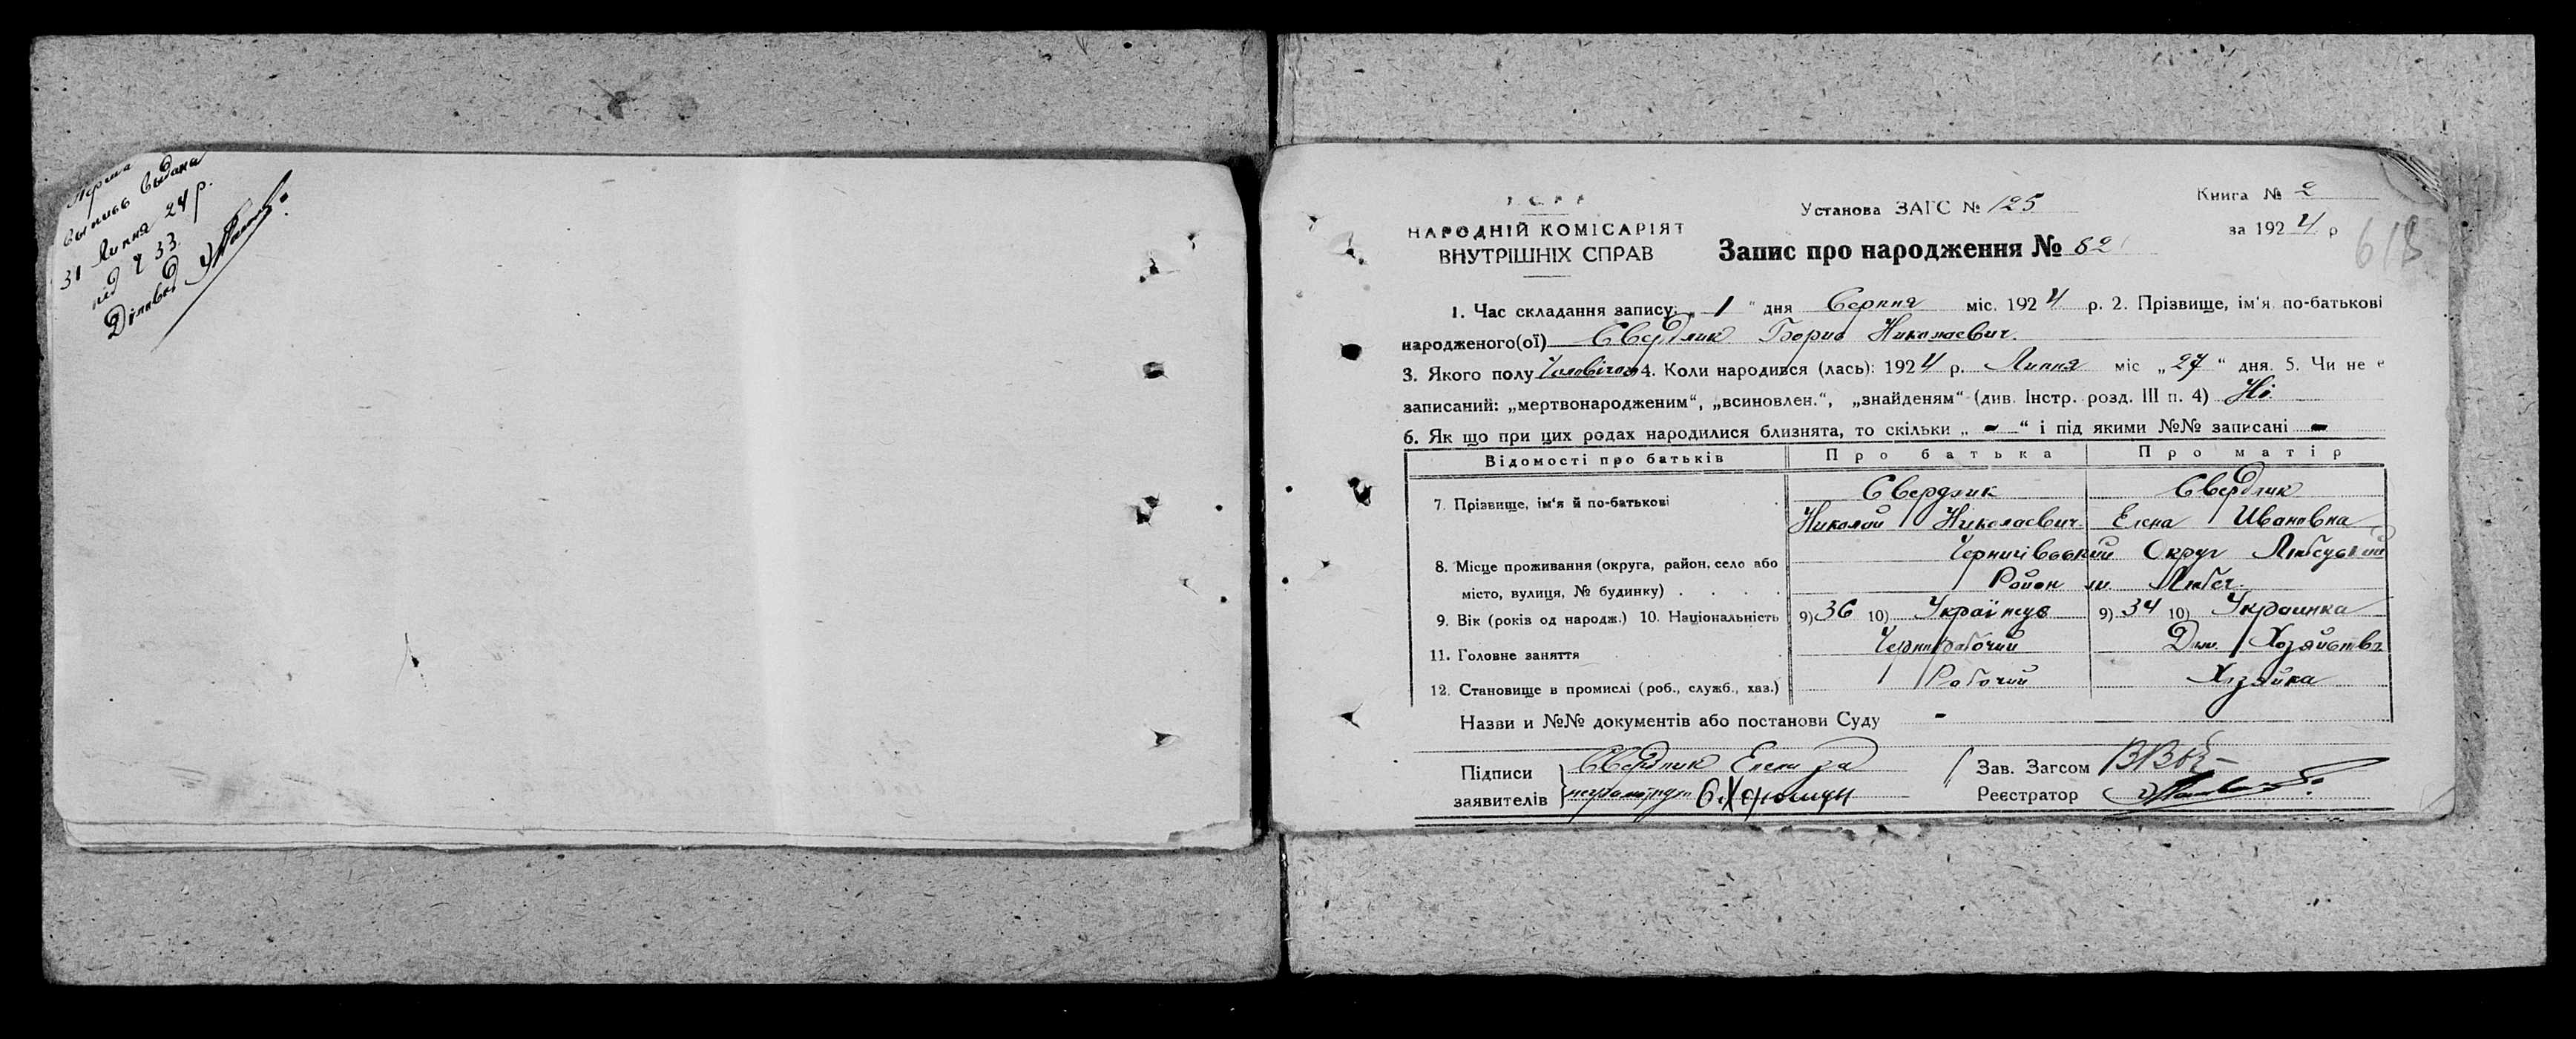 Перша
выпись выдана
31 Липня 24 р.
під № 33.
Діловод
УСРР
НАРОДНІЙ КОМІСАРІЯТ
ВНУТРІШНІХ СПРАВ
Установа ЗАГС № 125
Книга № 2
за 1924 р
618
Запис про народження № 82
1. Час складання запису: „1“ дня Серпня міс. 1924 р. 2. Прізвище, ім‘я по-батькові
народженого(ої) Свердлик Борис Николаевич.
3. Якого полу Чоловічого 4. Коли народився (лась): 1924 р. Липня міс „27“ дня. 5. Чи не є
записаний: „мертвонародженим“, „всиновлен.“, „знайденям“ (див. Інстр. розд. III п. 4) Ні
6. Як що при цих родах народилися близнята, то скільки „ - “ і під якими №№ записані -
Відомості про батьків Про батька Про матір
7. Прізвище, ім‘я й по-батькові Свердлик Николай Николаевич Свердлик Елена Ивановна
8. Місце проживання (округа, район, село або
місто, вулиця, № будинку) . . . . Чернигівський Округ Любецький
Район м. Любеч.
9. Вік (років од народж.) 10. Національність 9) 36 10) Українец 9) 34 10) Украинка
11. Головне заняття Чернорабочий Дом. Хозяйство
12. Становище в промислі (роб., служб., хаз.) Рабочий Хозяйка
Назви и №№ документів або постанови Суду -
Підписи Свердлик Елени за
заявителів неграмотную
Зав. Загсом
Реєстратор